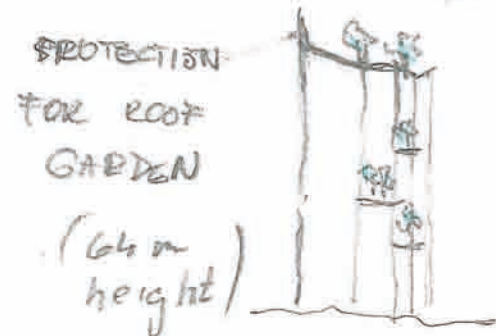 PROTECTION
FOR ROOF
GARDEN
(64 m
height)